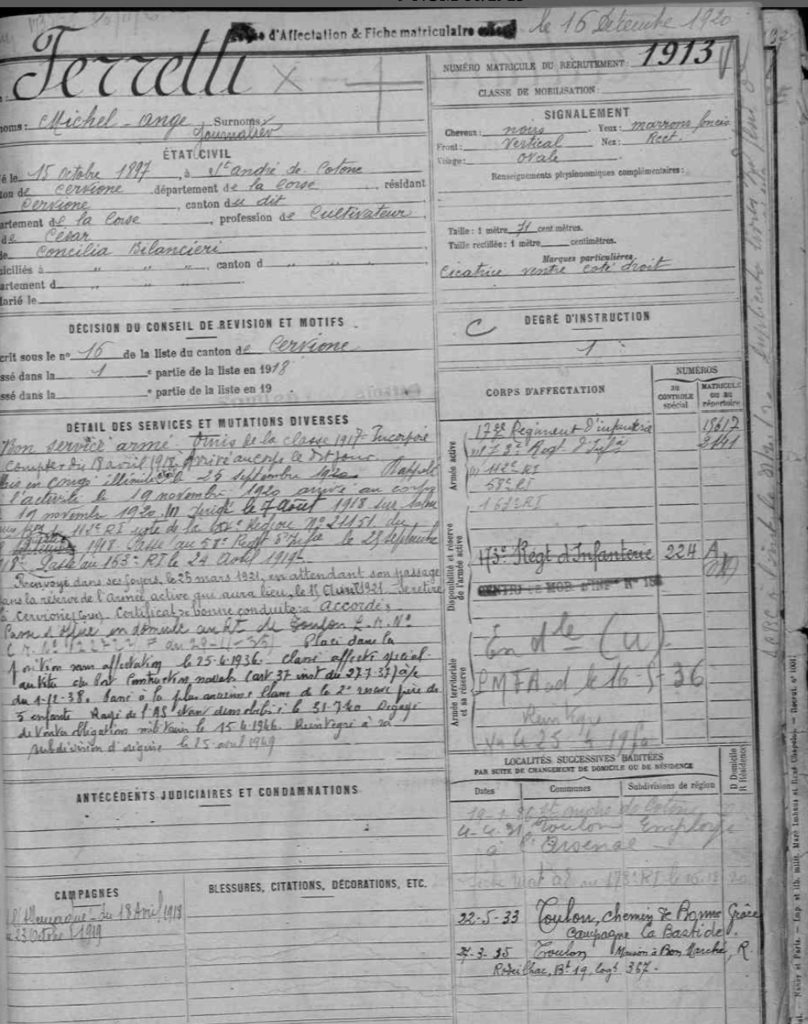 d'Affectation & Fiche matriculaire
le 16 Décembre 1920
Ferrelli
NUMÉRO MATRICULE DU RECRUTEMENT : 1913
CLASSE DE MOBILISATION :
noms : Michel-Ange Surnoms
Journalier
ÉTAT CIVIL
é le 15 octobre 1897, à St André de Cotone
ton de Cervione, département de la Corse, résidant
Cervione, canton du dit
partement de la Corse, profession de Cultivateur
de César
de Concilia Bilancieri
iciliés à " " " canton d " "
artement d " " "
arié le
SIGNALEMENT
Cheveux : noirs Yeux : marrons foncés
Front : Vertical Nez : Rect.
Visage : ovale
Renseignements physionomiques complémentaires :
Taille : 1 mètre 71 centimètres.
Taille rectifiée : 1 mètre centimètres.
Marques particulières
Cicatrice ventre coté droit
DÉCISION DU CONSEIL DE REVISION ET MOTIFS
crit sous le n° 16 de la liste du canton de Cervione
ssé dans la 1 e partie de la liste en 1918
ssé dans la e partie de la liste en 19
DEGRÉ D'INSTRUCTION
1
DÉTAIL DES SERVICES ET MUTATIONS DIVERSES
Bon service armé. Omis de la classe 1917. Incorporé
compter du 18 avril 1918. Arrivé au corps le dit jour
en congé illimité le 25 septembre 1920 Rappelé
l'activité le 19 novembre 1920 arrivé au corps
19 novembre 1920. Dirigé le 7 Août 1918 sur
112e RI note de la Région N° 21151 du
1918 Passé au 58e Regt d'Infie le 29 septembre
18. Passé au 163e RI le 24 Avril 1919.
Renvoyé dans ses foyers, le 25 mars 1921, en attendant son passage
dans la réserve de l'Armée active qui aura lieu, le 15 Avril 1921. Se retire
à Cervione (Corse) Certificat de bonne conduite : Accordé.
Passé d'office en domicile au Rt de Toulon
Placé dans la
position sans affectation le 25-6-1936. Classé affecté spécial
au titre du Port Constructions navales
du 1-11-38. Passé à la plus ancienne classe de la 2e réserve père de
5 enfants. Rayé de l'AS étant démobilisé le 31-7-40 Dégagé
de toutes obligations militaires le 15-4-1946. Réintégré à sa
subdivision d'origine le 25 avril 1949
CORPS D'AFFECTATION
NUMÉROS
AU CONTROLE spécial
MATRICULE OU AU répertoire
Armée active
173e Régiment d'infanterie 15617
173e Regt d'Infie 2141
112e RI
58e RI
163e RI
Disponibilité et réserve de l'armée active
173e Regt d'Infanterie 224 A
Armée territoriale et sa réserve
En dle (U)
le 16-5-36
Réintégré
LOCALITÉS SUCCESSIVES HABITÉES
PAR SUITE DE CHANGEMENT DE DOMICILE OU DE RÉSIDENCE
Dates Communes Subdivisions de région D Domicile R Résidence
St André de Cotone
4-4-31 Toulon Employé
à l'Arsenal
22-5-33 Toulon, chemin de Bonne Grâce
Campagne la Bastide.
27-3-35 Toulon Maison à Bon Marché, R.
Rodeilhac, Bt 19, logt 367.
ANTÉCÉDENTS JUDICIAIRES ET CONDAMNATIONS
CAMPAGNES
BLESSURES, CITATIONS, DÉCORATIONS, ETC.
l'Allemagne du 18 Avril 1918
23 Octobre 1919